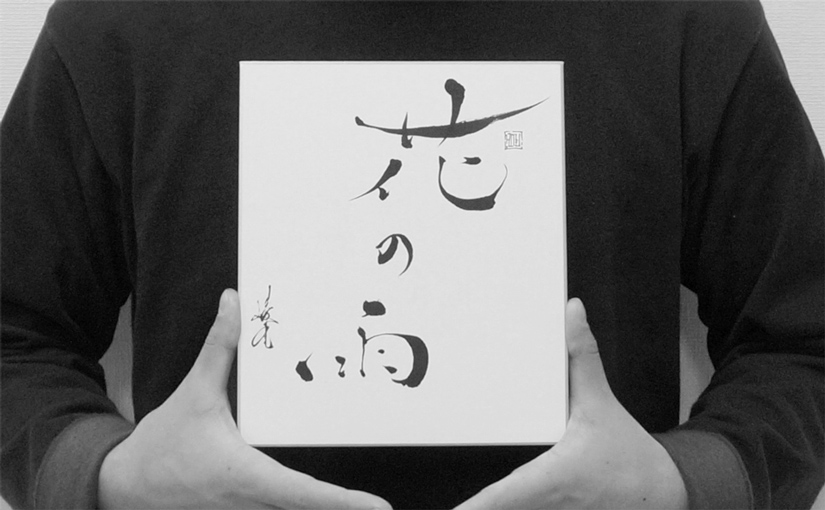 花の雨